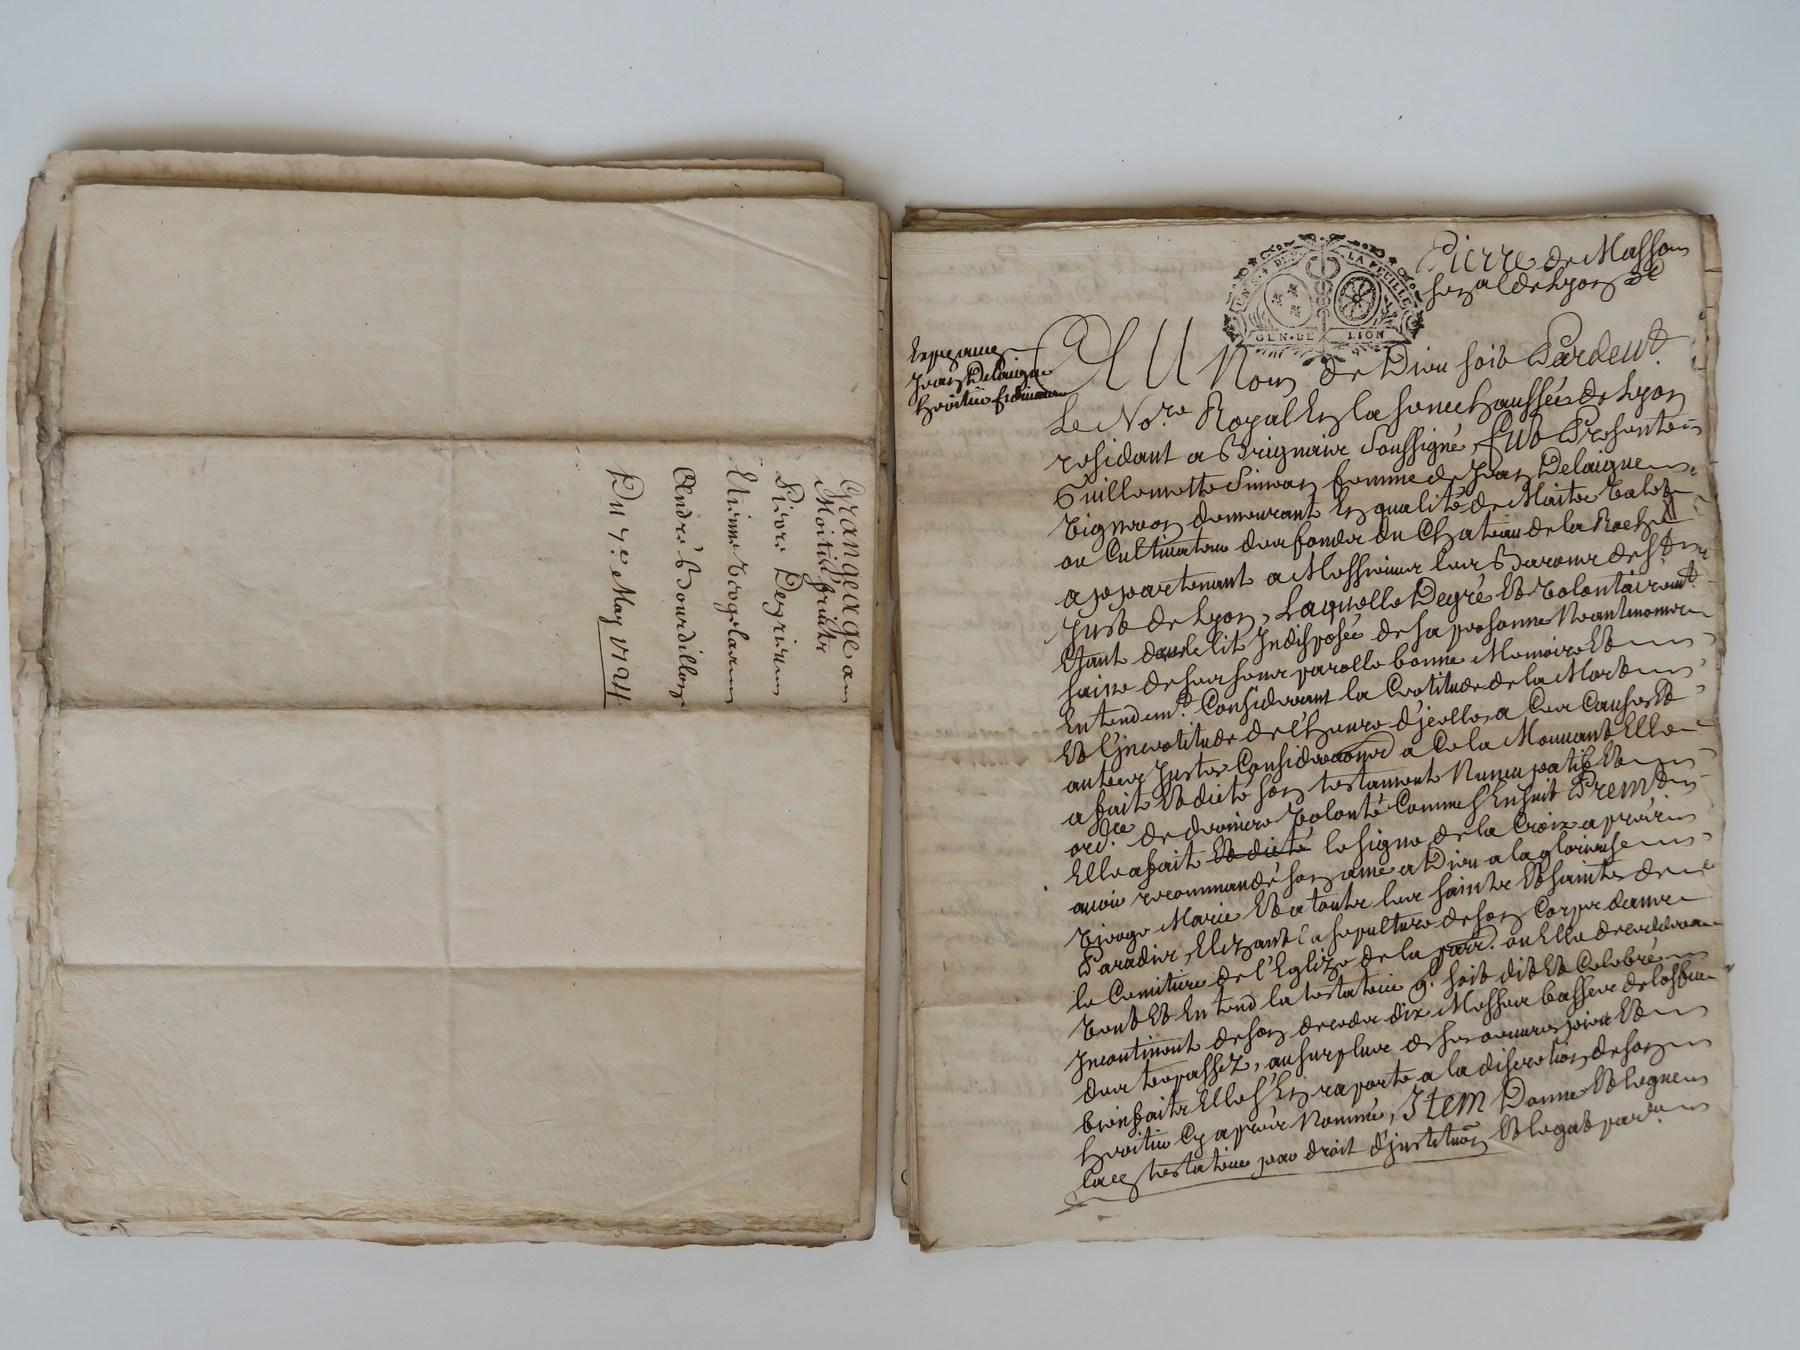 Grangeage a
Moitié fruits
Pierre Degrieu
Etienne
André Bourdillon
Du 7e May 1724
UN S. 4 D. LA FEUILLE
GEN. DE LION
Pierre de Masson
senal de Lyon &c
Jean Delaigue
heritier
AU Nom de Dieu soit Pardeut
Le No.re Royal En la senechaussée de Lyon
residant a Brignais soussigné, fut Presente
Guillemette Simon femme de Jean Delaigue
vigneron demeurant En qualité de Maitre valet
ou Cultivateur des fonds du Chateau de la Roche
appartenant a Messieurs les Barons de St
Just de Lyon, Laquelle Degré Et volontairemt
Etant dans le lit Indisposée de sa personne Neantmoins
saine de ses sens parolle bonne Memoire Et
Entendemt Considerant la Certitude de la Mort
Et l'incertitude de l'heure d'icelle, a Ces Causes Et
autres Justes Considerations a Ce la Mouvant Elle
a fait Et dicté son testament Nuncupatif Et
ord.ce de derniere volonté Comme s'Ensuit Premt
Elle a fait Et dicté le signe de la Croix apres
avoir recommandé son ame a Dieu a la glorieuse
vierge Marie Et a touts les saints Et saintes de
Paradis, Elizant la sepulture de son Corps dans
le Cemitiere de l'Eglize de la parr. ou Elle decedera
veut Et Entend la testatrice q. soit dit Et Celebré
Incontinent de son deceds dix Messes basses de l'office
des trepassez, au surplus de ses oeuvres pies Et
bienfaits Elle s'En raporte a la discretion de son
heritier Cy apres Nommé, Item Donne Et Legue
testatrice par droit d'institution Et legat par